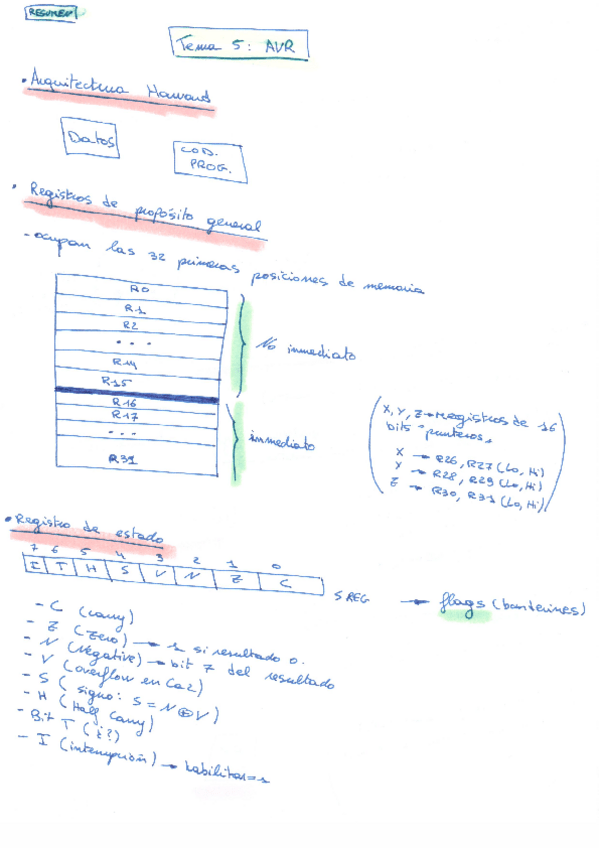 RESUMEN
Tema 5: AVR
• Arquitectura Harvard
Datos
COD.
PROG.
• Registros de propósito general
- ocupan las 32 primeras posiciones de memoria
R0
R1
R2
...
R14
R15
R16
R17
...
R31
No inmediato
inmediato
X, Y, Z → registros de 16
bits "punteros"
X → R26, R27 (Lo, Hi)
Y → R28, R29 (Lo, Hi)
Z → R30, R31 (Lo, Hi)
• Registro de estado
7 6 5 4 3 2 1 0
I T H S V N Z C
SREG → flags (banderines)
- C (carry)
- Z (Zero) → 1 si resultado 0.
- N (Negative) → bit 7 del resultado
- V (overflow en Ca2)
- S (signo: S = N ⊕ V)
- H (Half Carry)
- Bit T (¿?)
- I (interrupción) → habilitar=1